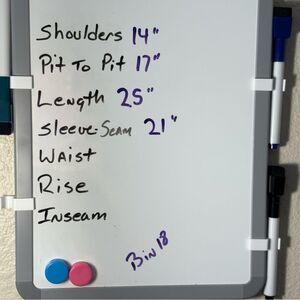 Shoulders 14"
Pit To Pit 17"
Length 25"
Sleeve-Seam 21"
Waist
Rise
Inseam
Bin 18